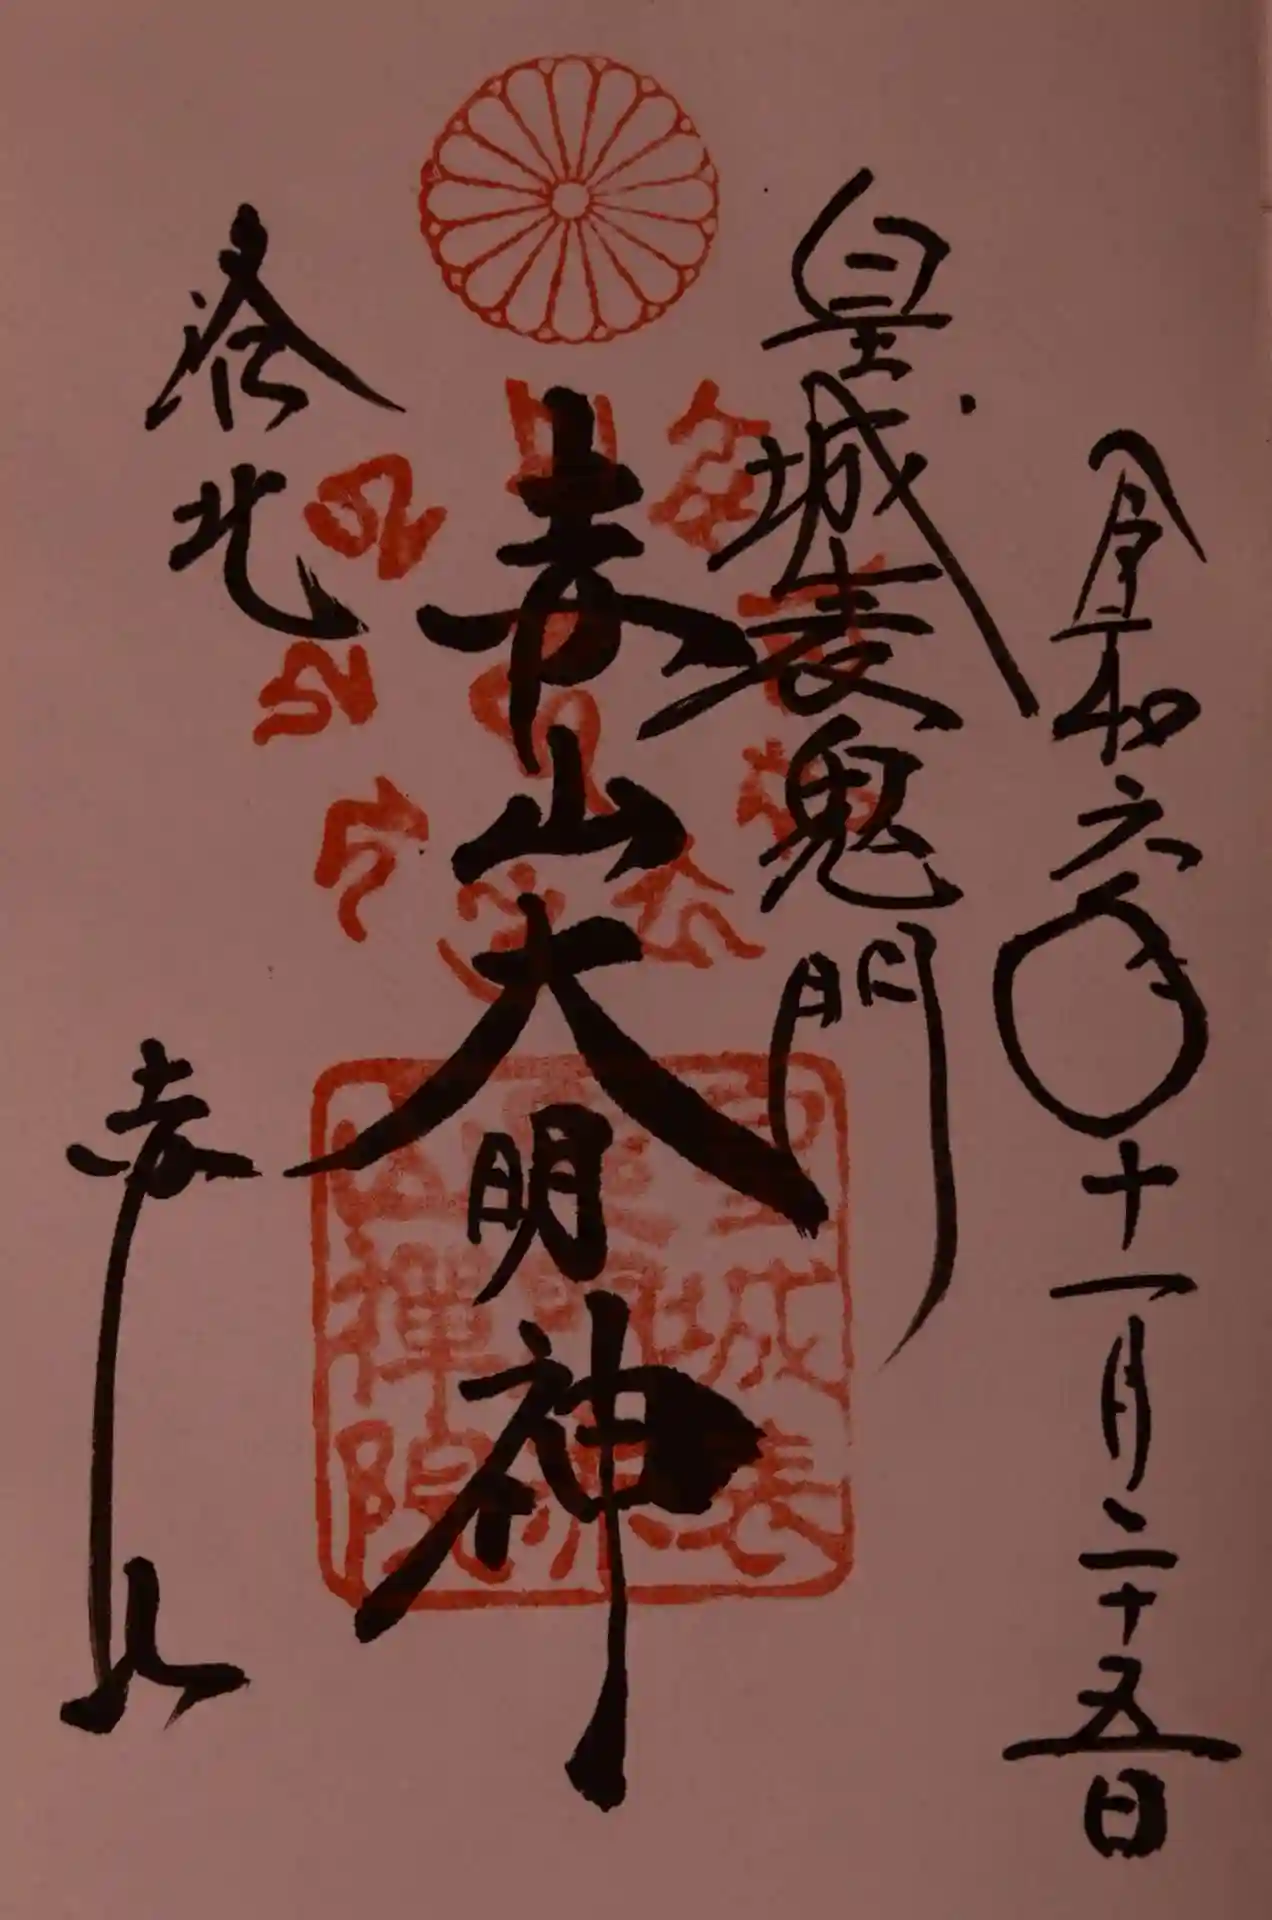 令和六年十一月二十五日
皇城表鬼門
赤山大明神
洛北
赤山
皇城表
山禅院